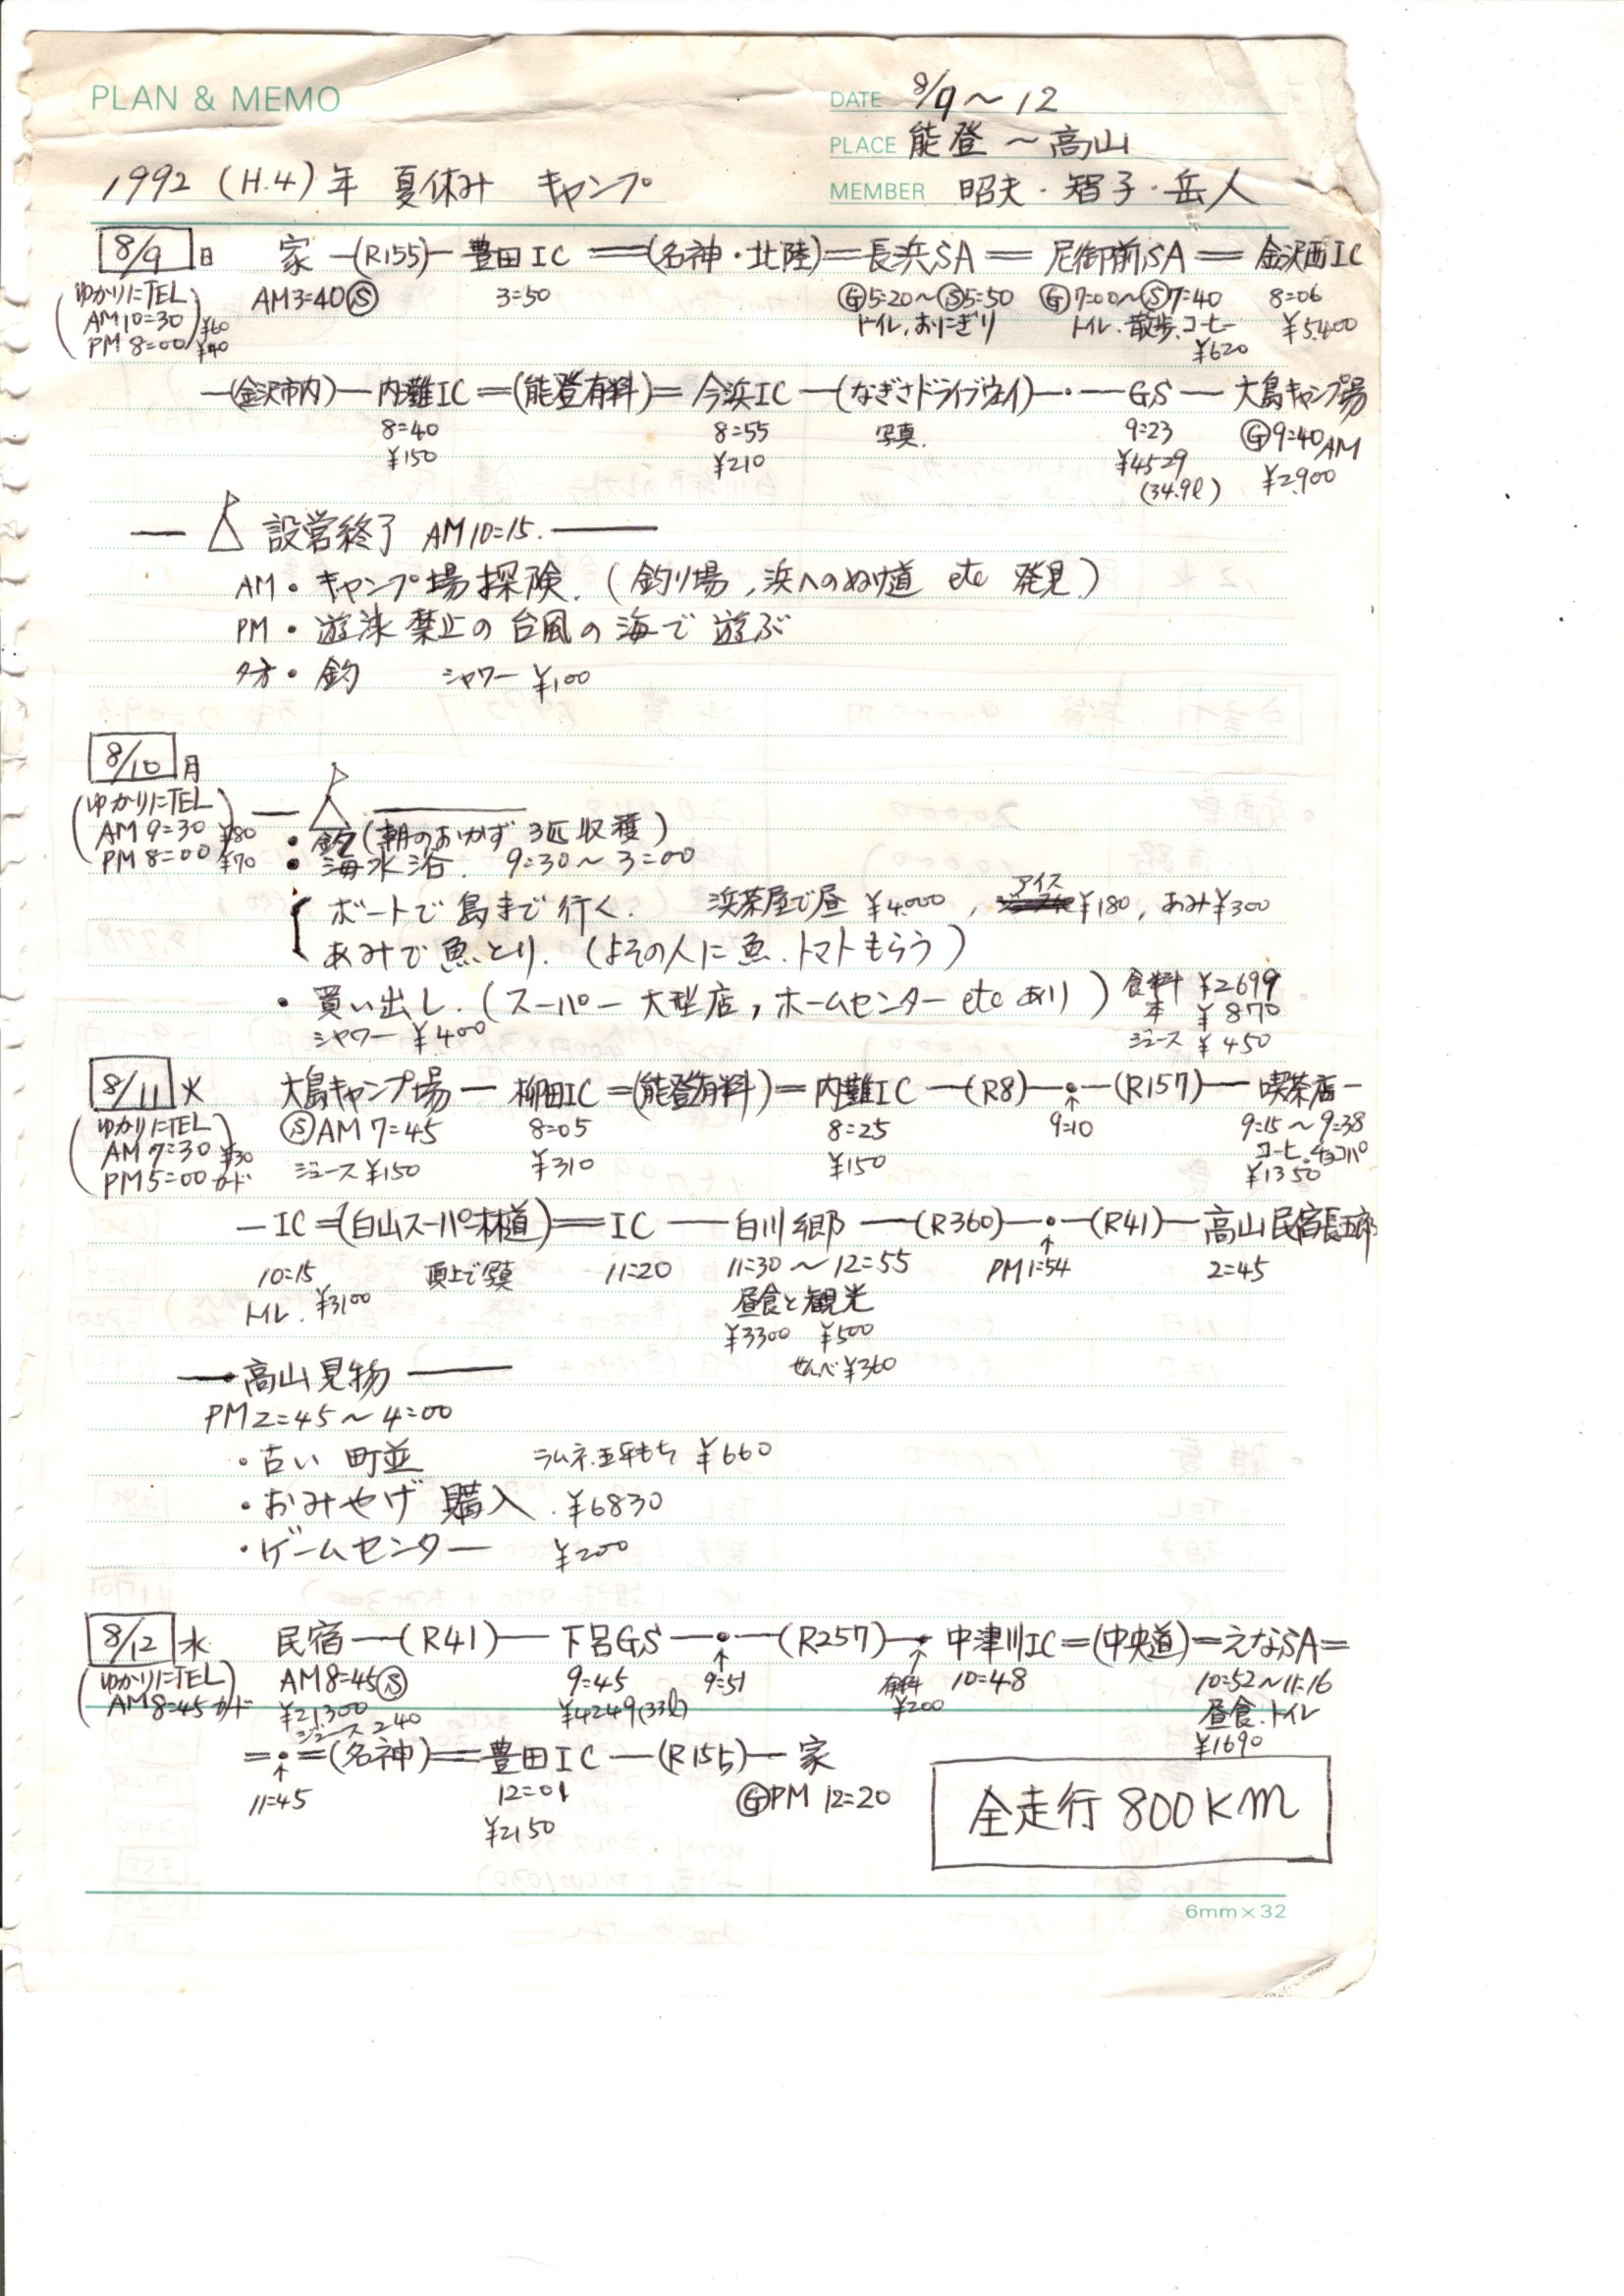 PLAN & MEMO
DATE 8/9～12
PLACE 能登～高山
1992 (H.4)年 夏休み キャンプ
MEMBER 昭夫・智子・岳人
8/9 日 家 ―(R155)― 豊田IC ＝(名神・北陸)＝ 長浜SA ＝ 尼御前SA ＝ 金沢西IC
(ゆかりにTEL AM3=40Ⓢ 3=50 Ⓖ5=20～Ⓢ5=50 Ⓖ7=00～Ⓢ7=40 8=06
AM10=30 ¥60 トイレ,おにぎり トイレ.散歩.コーヒー ¥5,400
PM 8=00) ¥40 ¥620
―(金沢市内)― 内灘IC ＝(能登有料)＝ 今浜IC ―(なぎさドライブウェイ)―・― GS ― 大島キャンプ場
8=40 8=55 写真. 9=23 Ⓖ9=40AM
¥150 ¥210 ¥4529 ¥2,900
(34.9ℓ)
― 設営終了 AM10=15. ―
AM・キャンプ場探険.(釣り場,浜へのぬけ道 etc 発見)
PM・遊泳禁止の台風の海で遊ぶ
夕方・釣 シャワー ¥100
8/10 月
(ゆかりにTEL
AM 9=30 ¥80
PM 8=00) ¥70
・釣(朝のおかず 3匹収穫)
・海水浴. 9=30～3=00
ボートで島まで行く. 浜茶屋で昼 ¥4,000, アイス ¥180, あみ¥300
あみで魚とり.(よその人に魚.トマトもらう)
・買い出し.(スーパー大型店,ホームセンター etc あり) 食料 ¥2699
シャワー ¥400 本 ¥870
ジュース ¥450
8/11 火 大島キャンプ場 ― 柳田IC ＝(能登有料)＝ 内灘IC ―(R8)―・―(R157)― 喫茶店―
(ゆかりにTEL ⓈAM 7=45 8=05 8=25 ↑ 9=10 9=15～9=38
AM 7=30 ¥30 ジュース¥150 ¥310 ¥150 コーヒー.チョコパ
PM5=00) カード ¥1350
―IC＝(白山スーパー林道)＝IC ― 白川郷 ―(R360)―・―(R41)― 高山民宿長五郎
10=15 頂上で写真 11=20 11=30～12=55 ↑ PM1=54 2=45
トイレ. ¥3100 昼食と観光
¥3300 ¥500
せんべ¥360
―・高山見物―
PM2=45～4=00
・古い町並 ラムネ.五平もち ¥660
・おみやげ購入. ¥6830
・ゲームセンター ¥200
8/12 水 民宿 ―(R41)― 下呂GS ―・―(R257)―・ 中津川IC＝(中央道)＝えなSA＝
(ゆかりにTEL AM8=45Ⓢ 9=45 ↑ 9=51 ↑ 有料 10=48 10=52～11=16
AM 8=45 カード ¥21,300 ¥4249(33ℓ) ¥200 昼食.トイレ
ジュース240 ¥1690
＝・＝(名神)＝ 豊田IC ―(R155)― 家
↑ 11=45 12=01 ⒼPM 12=20
¥2150
全走行 800km
6mm×32